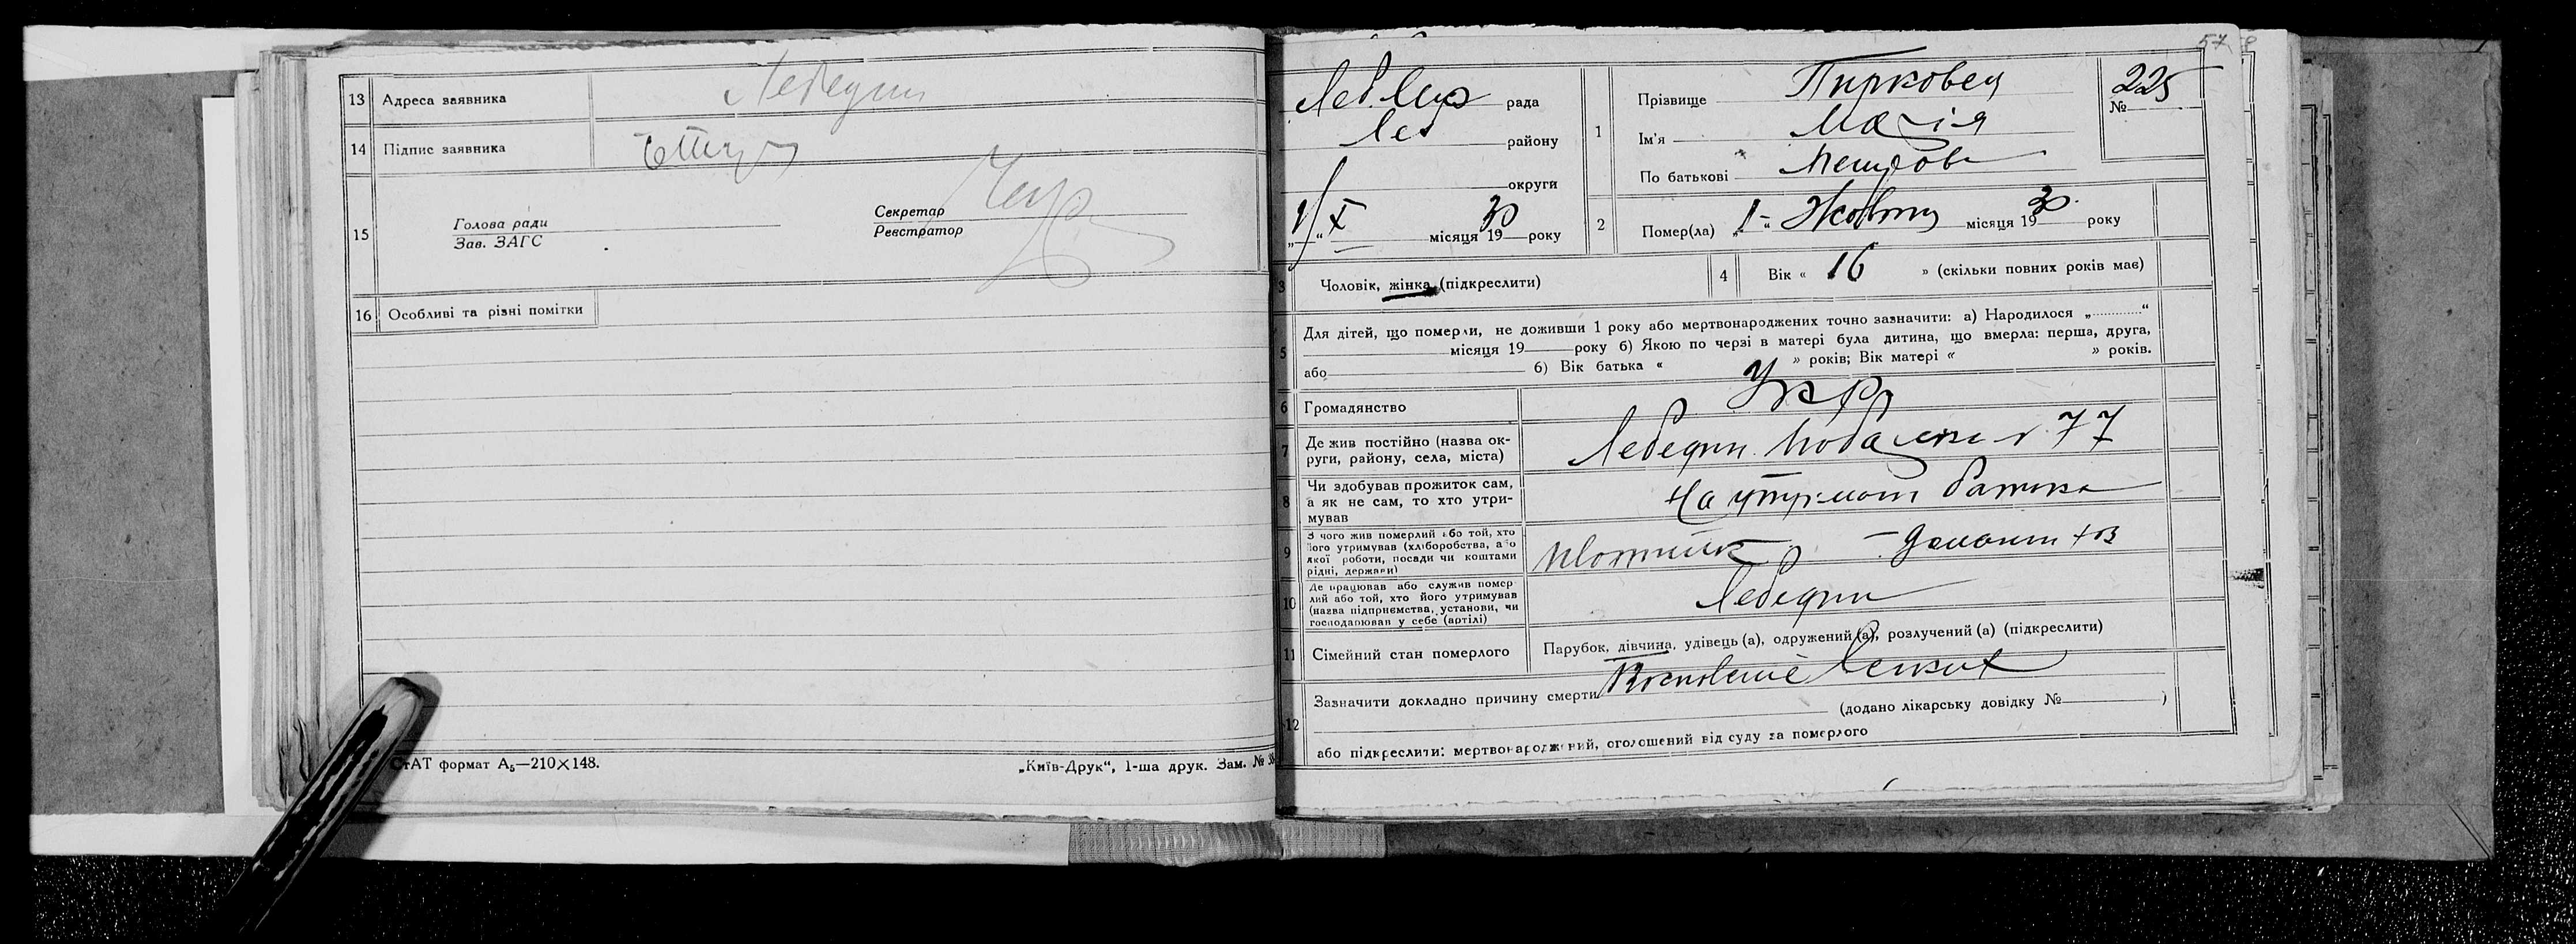 13 Адреса заявника Лебедин
14 Підпис заявника
15 Голова ради
Зав. ЗАГС
Секретар
Реєстратор
16 Особливі та різні помітки
СтАТ формат А₅—210×148.
„Київ-Друк“, 1-ша друк. Зам. № 38
57
Леб. рада
Леб району
округи
„1“ X місяця 1930 року
№ 225
1 Прізвище Пирковец
Ім'я Марія
По батькові Петрова
2 Помер(ла) „1“ Жовтня місяця 1930 року
3 Чоловік, жінка (підкреслити)
4 Вік « 16 » (скільки повних років має)
5 Для дітей, що померли, не доживши 1 року або мертвонароджених точно зазначити: а) Народилося „............“
місяця 19 року б) Якою по черзі в матері була дитина, що вмерла: перша, друга,
або б) Вік батька « » років; Вік матері « » років.
6 Громадянство Укр
7 Де жив постійно (назва округи, району, села, міста) Лебедин 77
8 Чи здобував прожиток сам, а як не сам, то хто утримував На утриман батька
9 З чого жив померлий або той, хто його утримував (хліборобства, або якої роботи, посади чи коштами рідні, держави)
10 Де працював або служив помер лий або той, хто його утримував (назва підприємства, установи, чи господарював у себе (артілі) Лебедин
11 Сімейний стан померлого Парубок, дівчина, удівець (а), одружений (а), розлучений (а) (підкреслити)
12 Зазначити докладно причину смерти легких
(додано лікарську довідку № )
або підкреслити: мертвонароджений, оголошений від суду за померлого